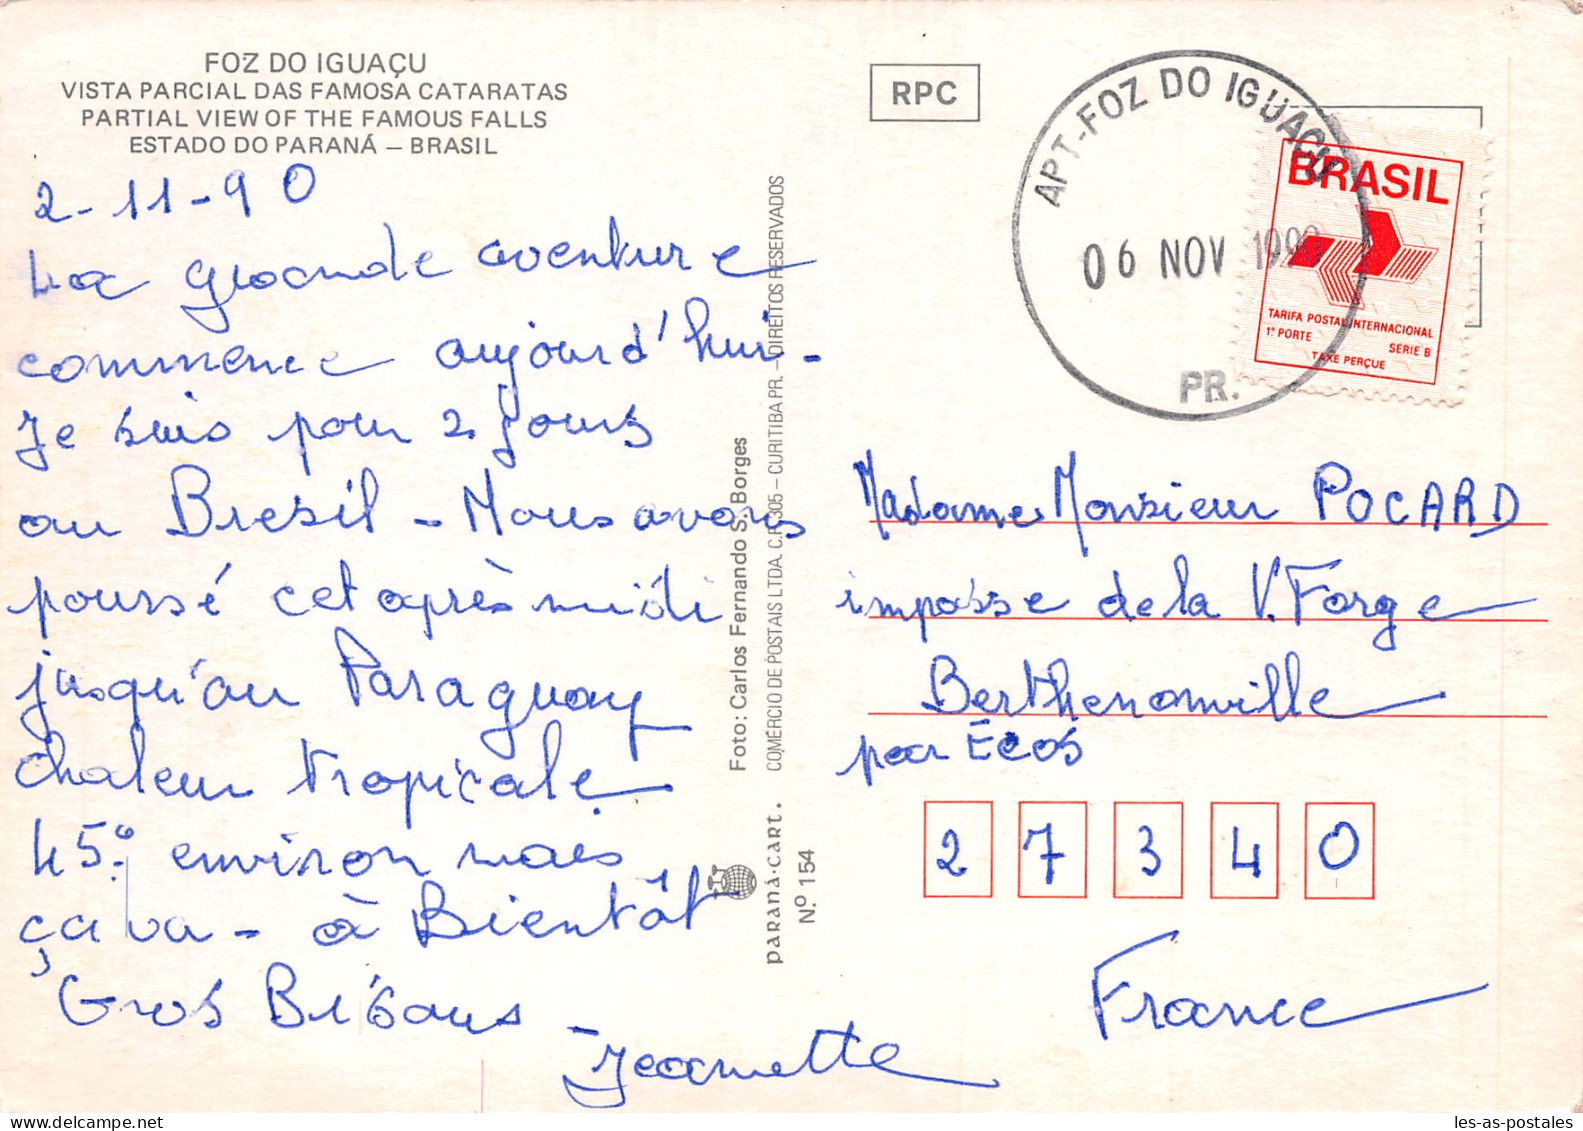 FOZ DO IGUAÇU
VISTA PARCIAL DAS FAMOSA CATARATAS
PARTIAL VIEW OF THE FAMOUS FALLS
ESTADO DO PARANÁ – BRASIL
2-11-90
La grande aventure
commence aujourd'hui-
Je suis pour 2 jours
au Bresil - Nous avons
poussé cet après midi
jusqu'au Paraguay
chaleur tropicale
45° environ mais
ça va - à Bientôt
Gros Bisous
Jeannette
Foto: Carlos Fernando S. Borges
COMÉRCIO DE POSTAIS LTDA. C.P. 305 – CURITIBA PR. – DIREITOS RESERVADOS
paraná-cart.
N.º 154
RPC
APT-FOZ DO IGUAÇU
06 NOV 1990
PR.
BRASIL
TARIFA POSTAL INTERNACIONAL
1º PORTE SÉRIE B
TAXE PERÇUE
Madame Monsieur POCARD
impasse de la V. Forge
Berthenonville
par Écos
27340
France
les-as-postales